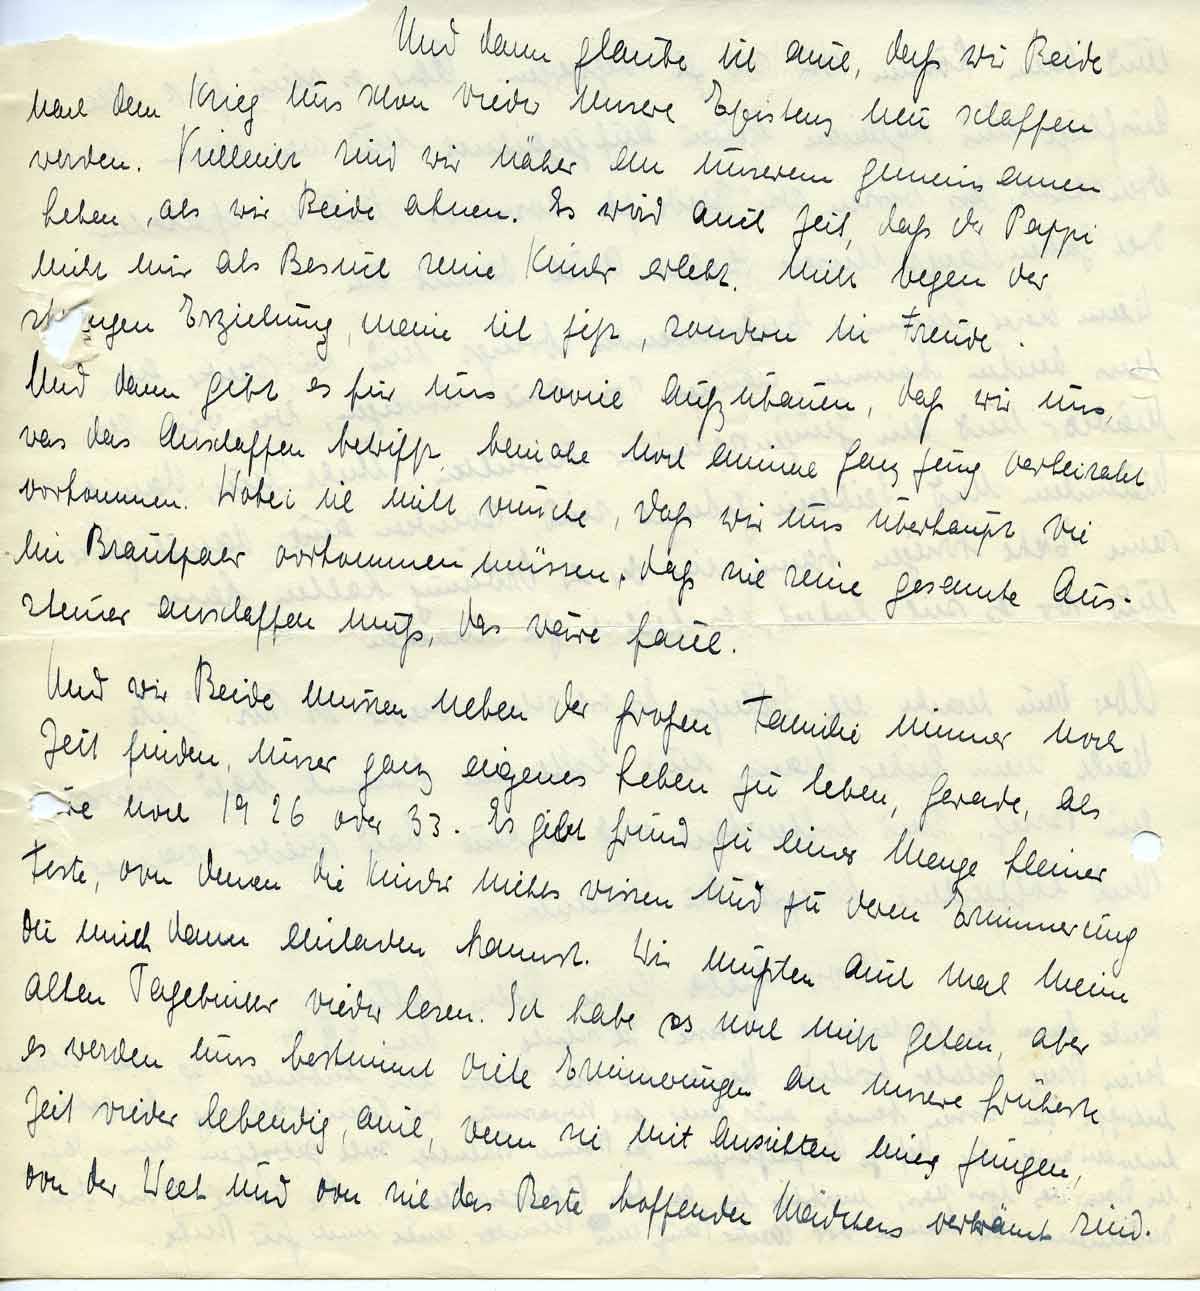 Und dann glaube ich auch, daß wir Beide
nach dem Krieg uns schon wieder unsere Existenz neu schaffen
werden. Vielleicht sind wir näher an unserem gemeinsamen
Leben, als wir Beide ahnen. Es wird auch Zeit, daß der Pappi
nicht nur als Besuch seine Kinder erlebt. Nicht wegen der
st engen Erziehung, meine ich jetzt, sondern in Freude.
Und dann gibt es für uns soviel aufzubauen, daß wir uns,
was das Anschaffen betrifft, beinahe noch einmal ganz jung verheiratet
vorkommen. Wobei ich nicht wünsche, daß wir uns überhaupt wie
ein Brautpaar vorkommen müssen, daß sich seine gesamte Aus-
steuer anschaffen muß, das wäre faul.
Und wir Beide müssen neben der großen Familie immer noch
Zeit finden, unser ganz eigenes Leben zu leben, gerade, als
wäre noch 1926 oder 33. Es gibt Grund zu einer Menge kleiner
Feste, von denen die Kinder nichts wissen und zu deren Erinnerung
Du mich dann einladen kannst. Wir müßten auch mal meine
alten Tagebücher wieder lesen. Ich habe es noch nicht getan, aber
es werden uns bestimmt viele Erinnerungen an unsere früheste
Zeit wieder lebendig, auch, wenn sie mit Ansichten eines jungen,
von der Welt und von sich das Beste hoffenden Mädchens verbrämt sind.